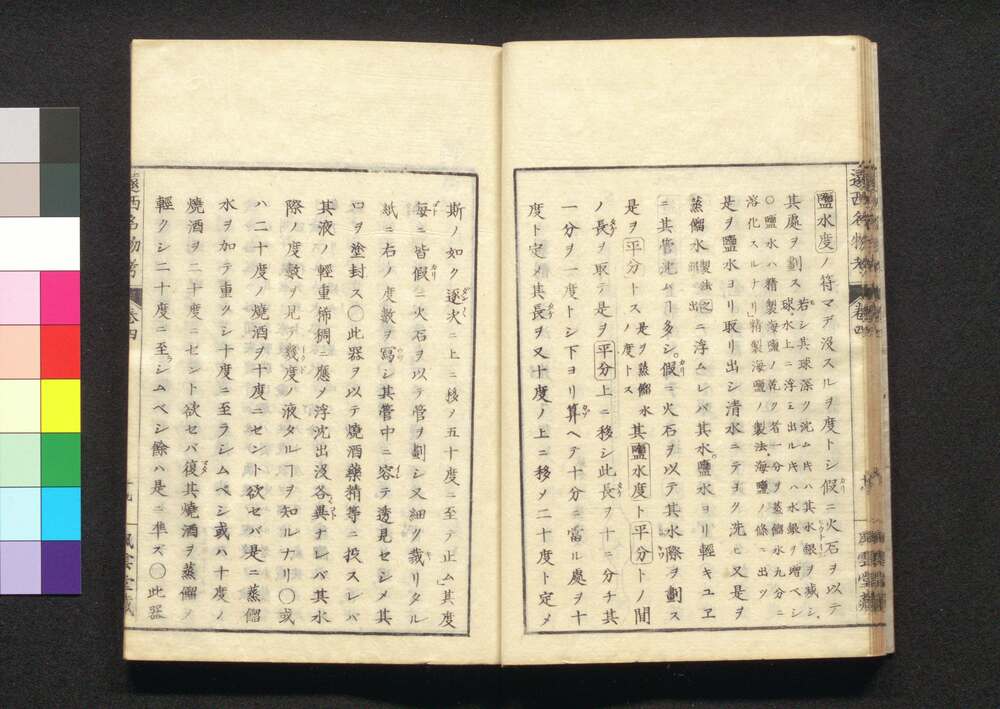 鹽水度ノ符マデ沒スルヲ度トシ假ニ火石ヲ以テ
其處ヲ劃ス 若シ其球深ク沈ムキハ其水銀ヲ減シ
球水上ニ浮ミ出ルキハ水銀ヲ増ベシ
○鹽水ハ精製海鹽ノ乾ク者一分ヲ蒸餾水九分ニ
溶化スルナリ精製海鹽ノ製法海鹽ノ條ニ出ツ
是ヲ鹽水ヨリ取リ出シ清水ニテヨク洗ヒ又是ヲ
蒸餾水 製法之ニ出 ニ浮ムレバ其水鹽水ヨリ輕キユヱ
ニ其管沈ムヿ多シ假ニ火石ヲ以テ其水際ヲ劃ス
是ヲ平分トス 是ヲ蒸餾水ノ度トス 其鹽水度ト平分トノ間
ノ長ヲ取テ是ヲ平分上ニ移シ此長ヲ十ニ分チ其
一分ヲ一度トシ下ヨリ算ヘテ十分ニ當ル處ヲ十
度ト定メ其長ヲ又十度ノ上ニ移メ二十度ト定メ
斯ノ如ク逐次ニ上ニ移メ五十度ニ至テ止ム其度
毎ニ皆假ニ火石ヲ以テ管ヲ劃シ又細ク裁リタル
紙ニ右ノ度數ヲ寫シ其管中ニ容テ透見セシメ其
口ヲ塗封ス○此器ヲ以テ燒酒藥精等ニ投スレバ
其液ノ輕重稀稠ニ應メ浮沈出沒各異ナレバ其水
際ノ度數ヲ見テ幾度ノ液タルヿヲ知ルナリ○或
ハ二十度ノ燒酒ヲ十度ニセント欲セバ是ニ蒸餾
水ヲ加テ重クシ十度ニ至ラシムベシ或ハ十度ノ
燒酒ヲ二十度ニセント欲セバ復其燒酒ヲ蒸餾メ
輕クシ二十度ニ至ラシムベシ餘ハ是ニ準ズ○此器
遠西名物考 卷四
風雲堂藏